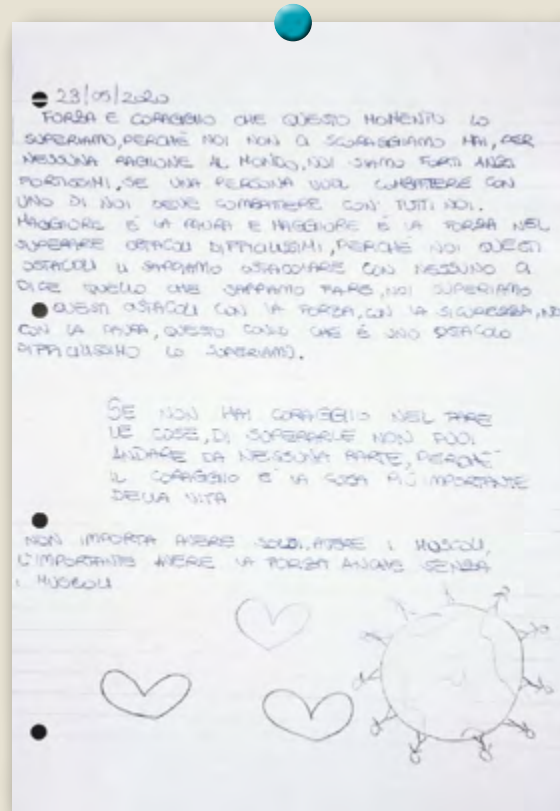 23/05/2020
FORZA E CORAGGIO CHE QUESTO MOMENTO LO
SUPERIAMO, PERCHÉ NOI NON CI SCORAGGIAMO MAI, PER
NESSUNA RAGIONE AL MONDO, NOI SIAMO FORTI ANZI
FORTISSIMI, SE UNA PERSONA VUOL COMBATTERE CON
UNO DI NOI DEVE COMBATTERE CON TUTTI NOI.
MAGGIORE È LA PAURA E MAGGIORE È LA FORZA NEL
SUPERARE OSTACOLI DIFFICILISSIMI, PERCHÉ NOI QUESTI
OSTACOLI LI SAPPIAMO OSTACOLARE CON NESSUNO CI
DICE QUELLO CHE SAPPIAMO FARE, NOI SUPERIAMO
QUESTI OSTACOLI CON LA FORZA, CON LA SICUREZZA, NO
CON LA PAURA, QUESTO CHE È UNO OSTACOLO
DIFFICILISSIMO LO SUPERIAMO.
SE NON HAI CORAGGIO NEL FARE
LE COSE, DI SUPERARLE NON PUOI
ANDARE DA NESSUNA PARTE, PERCHÉ
IL CORAGGIO È LA COSA PIÙ IMPORTANTE
DELLA VITA
NON IMPORTA AVERE SOLDI, AVERE I MUSCOLI,
L'IMPORTANTE AVERE LA FORZA ANCHE SENZA
I MUSCOLI